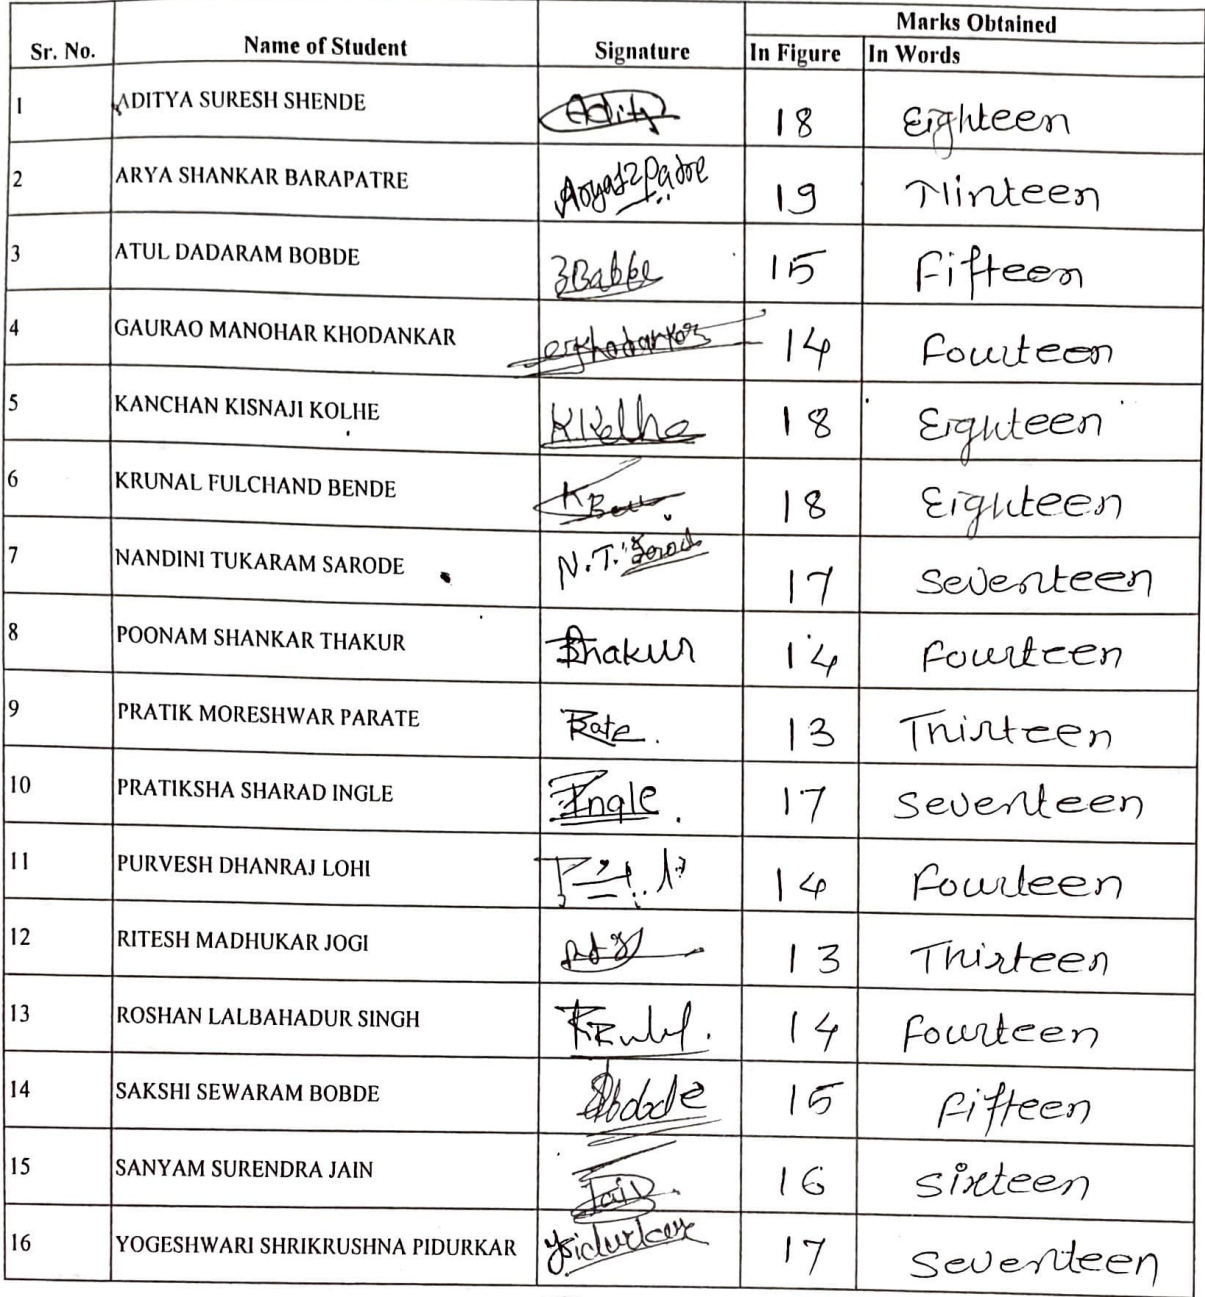 Marks Obtained
Sr. No. Name of Student Signature In Figure In Words
1 ADITYA SURESH SHENDE Adity 18 Eighteen
2 ARYA SHANKAR BARAPATRE 19 Ninteen
3 ATUL DADARAM BOBDE 15 Fifteen
4 GAURAO MANOHAR KHODANKAR 14 Fourteen
5 KANCHAN KISNAJI KOLHE K.Kolhe 18 Eighteen
6 KRUNAL FULCHAND BENDE 18 Eighteen
7 NANDINI TUKARAM SARODE N.T. 17 Seventeen
8 POONAM SHANKAR THAKUR Thakur 14 Fourteen
9 PRATIK MORESHWAR PARATE 13 Thirteen
10 PRATIKSHA SHARAD INGLE Ingle 17 Seventeen
11 PURVESH DHANRAJ LOHI 14 Fourteen
12 RITESH MADHUKAR JOGI 13 Thirteen
13 ROSHAN LALBAHADUR SINGH 14 Fourteen
14 SAKSHI SEWARAM BOBDE Sbobde 15 Fifteen
15 SANYAM SURENDRA JAIN Jain 16 Sixteen
16 YOGESHWARI SHRIKRUSHNA PIDURKAR 17 Seventeen